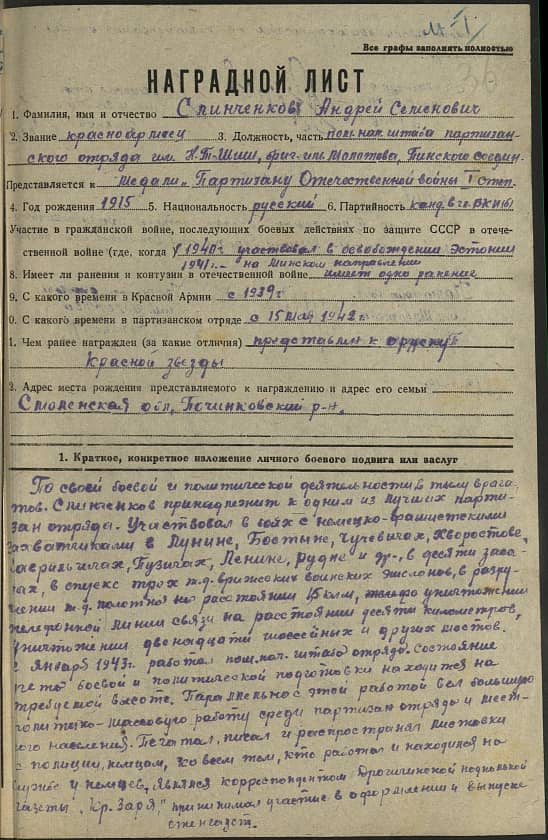 Все графы заполнять полностью
НАГРАДНОЙ ЛИСТ
1. Фамилия, имя и отчество Спинченков Андрей Семенович
2. Звание красноармеец 3. Должность, часть пом. нач. штаба партизан-
ского отряда им. Н.Т. Шиш, бриг. им. Молотова, Пинского соедин.
Представляется к Медали „Партизану Отечественной войны" I степ.
4. Год рождения 1915 5. Национальность русский 6. Партийность канд. в чл. ВКП(б)
Участие в гражданской войне, последующих боевых действиях по защите СССР в отече-
ственной войне (где, когда) 1940г участвовал в освобождении Эстонии
1941г. - на Минском направлении
8. Имеет ли ранения и контузии в отечественной войне имеет одно ранение
9. С какого времени в Красной Армии с 1939г
0. С какого времени в партизанском отряде с 15 мая 1942г.
1. Чем ранее награжден (за какие отличия) представлен к ордену
Красной звезды
2. Адрес места рождения представляемого к награждению и адрес его семьи
Смоленская обл, Починковский р-н.
1. Краткое, конкретное изложение личного боевого подвига или заслуг
По своей боевой и политической деятельности в тылу врага
тов. Спинченков принадлежит к одним из лучших парти-
зан отряда. Участвовал в боях с немецко-фашистскими
захватчиками в Лунине, Бостыне, Чучевичах, Хворостове,
Гаврильчах, Пузичах, Ленине, Рудне и др., в десяти заса-
дах, в спуске трех ж.д. вражеских воинских эшелонов, в разру-
шении ж.д. полотна на расстоянии 15 км, уничтожении
телефонной линии связи на расстоянии десяти километров,
уничтожении двенадцати шоссейных и других мостов.
С января 1943г. работал пом. нач. штаба отряда. Состояние
учета боевой и политической подготовки находится на
требуемой высоте. Параллельно с этой работой вел большую
политико-массовую работу среди партизан отряда и мест-
ного населения. Печатал, писал и распространял листовки
к полиции, немцам, ко всем тем, кто работал и находился на
службе у немцев. Являлся корреспондентом Дрогичинской подпольной
газеты „Кр. Заря," принимал участие в оформлении и выпуске
стенгазет.